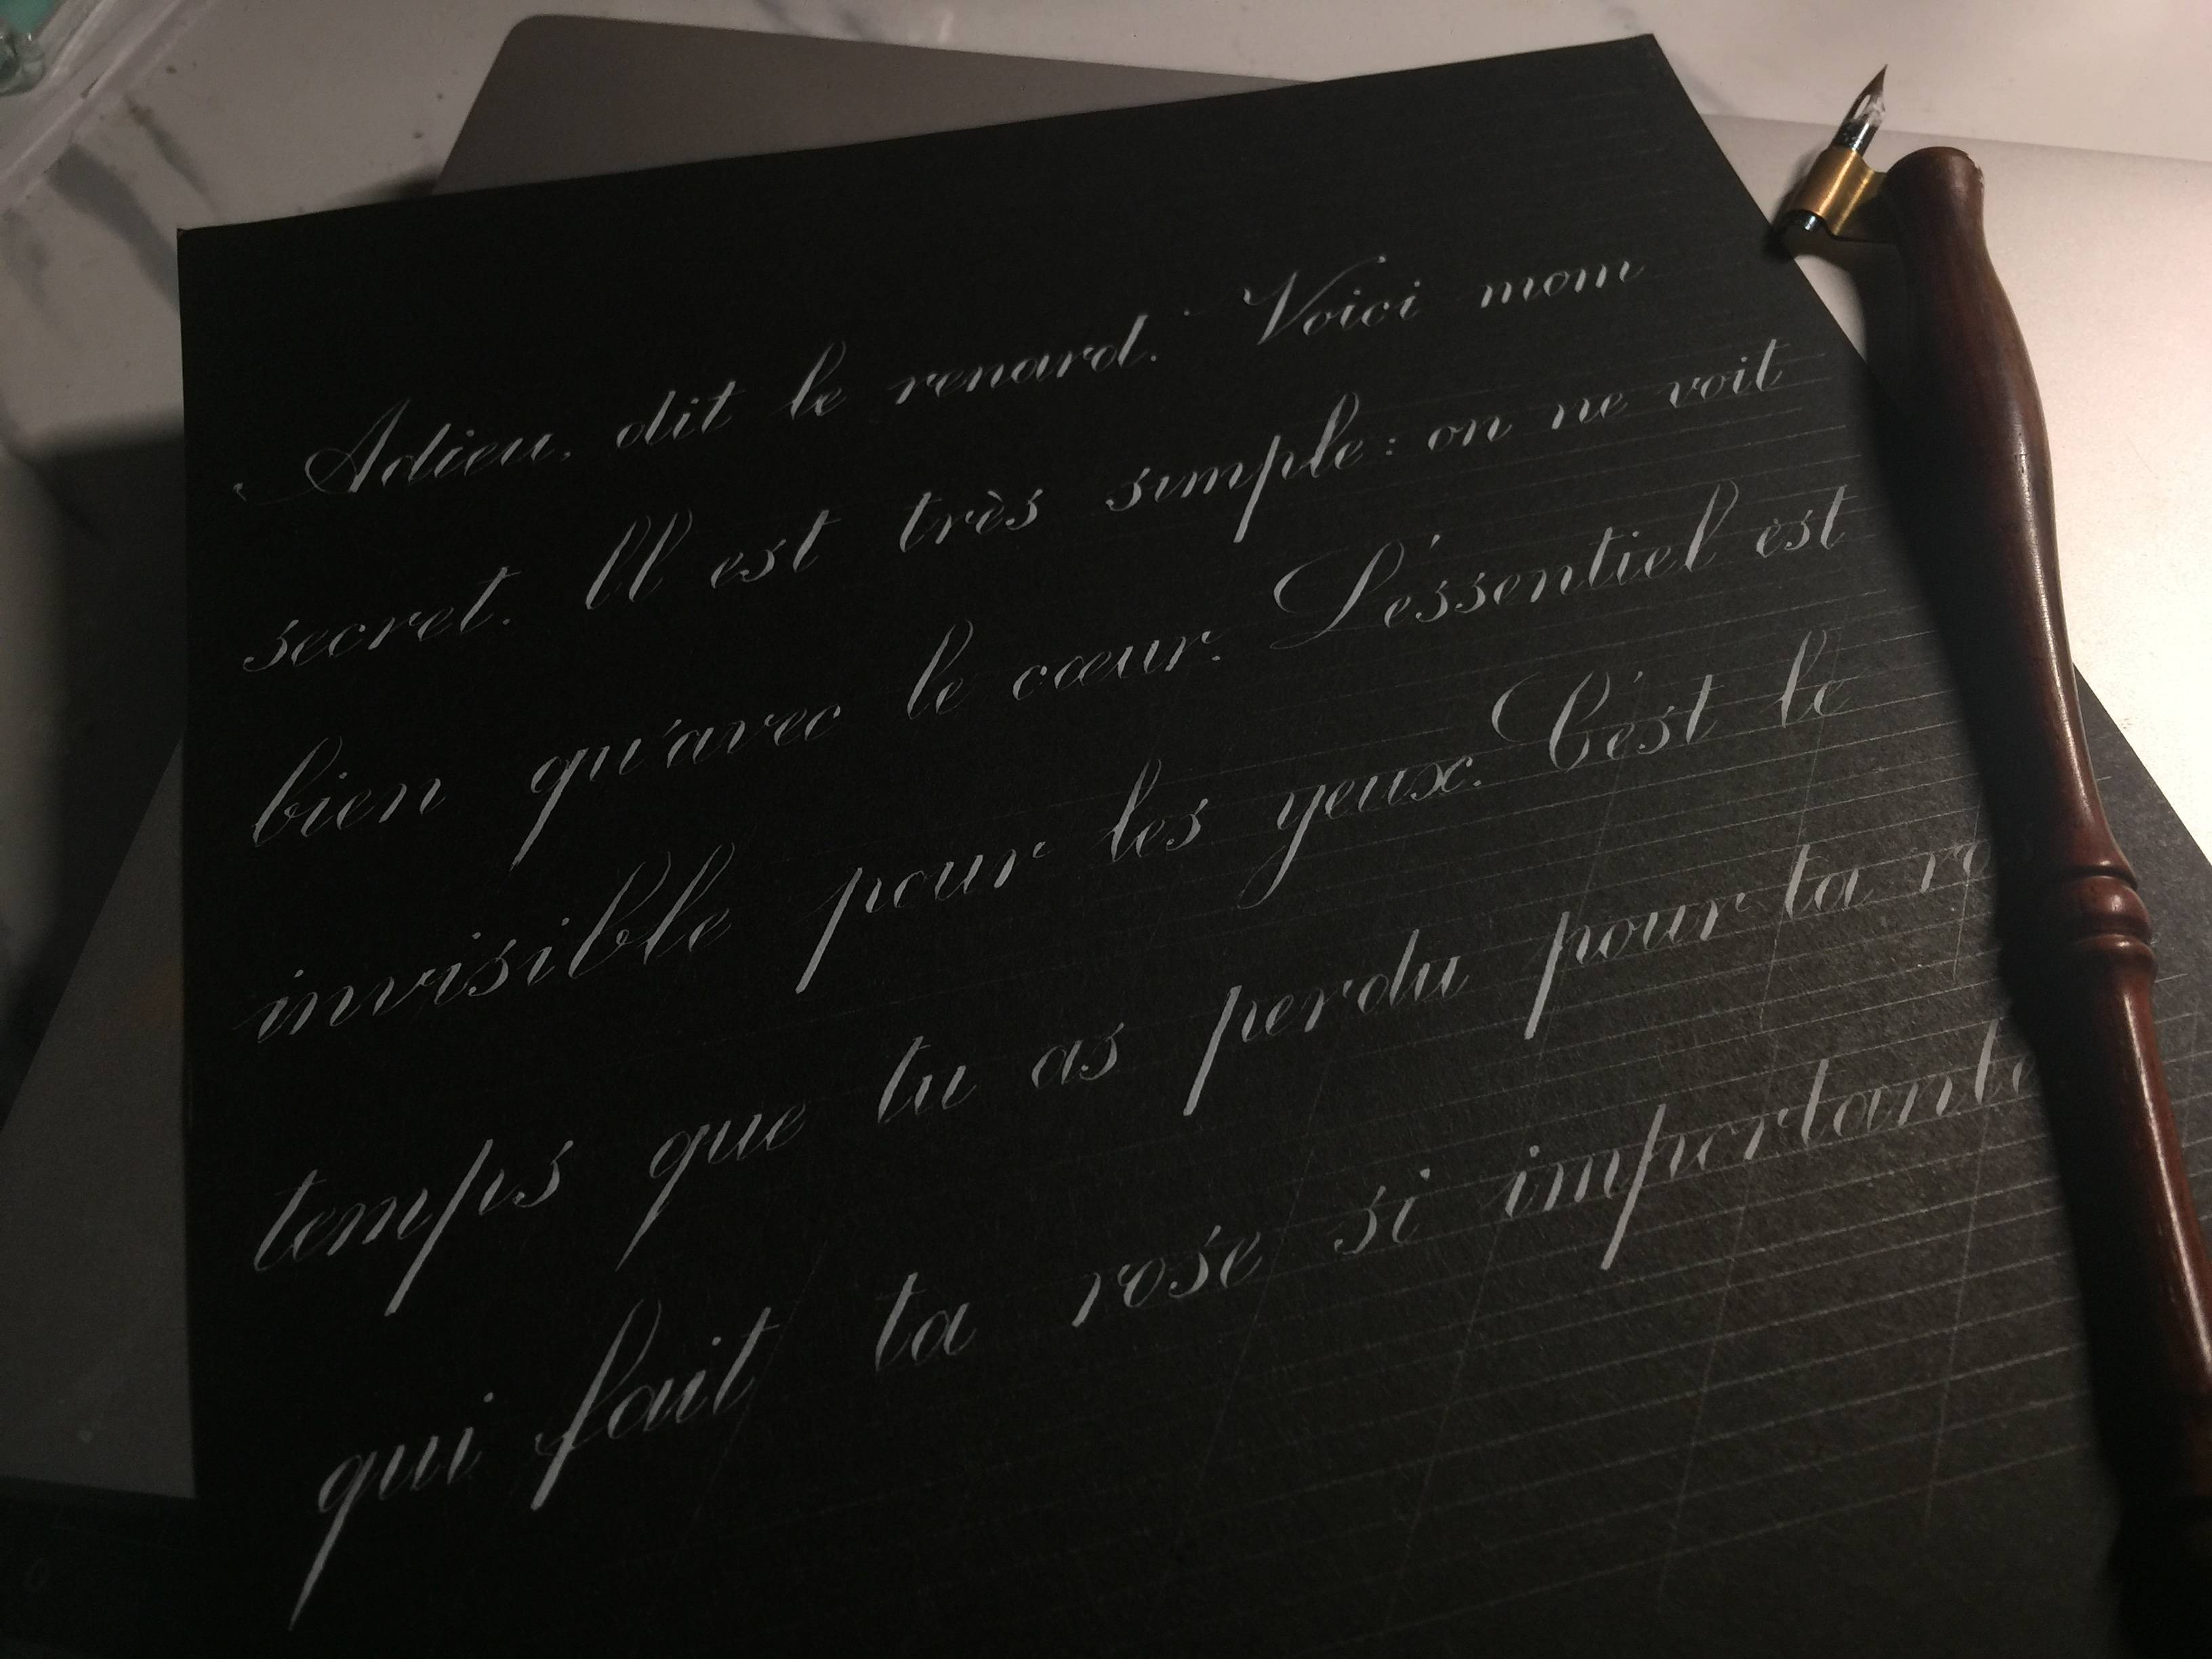 Adieu, dit le renard. Voici mom
secret. Il est très simple : on ne voit
bien qu'avec le cœur. L'essentiel est
invisible pour les yeux. C'est le
temps que tu as perdu pour ta
qui fait ta rose si importante